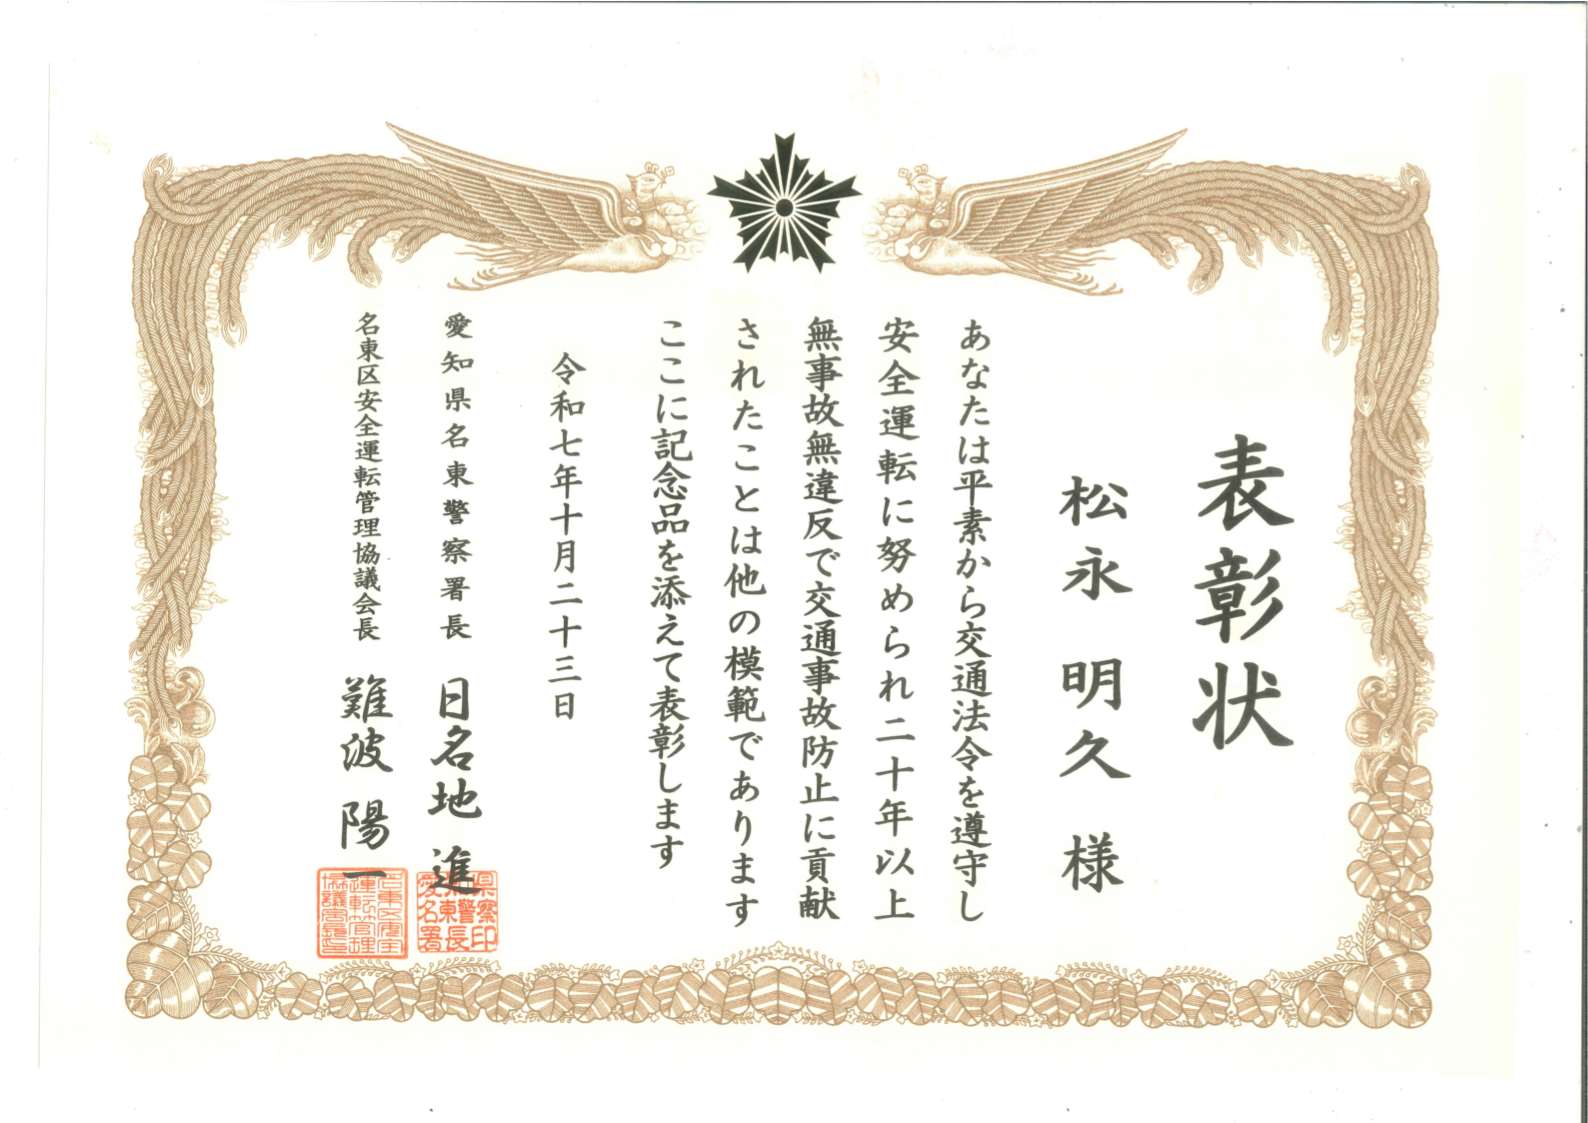 表彰状
松永明久様
あなたは平素から交通法令を遵守し
安全運転に努められ二十年以上
無事故無違反で交通事故防止に貢献
されたことは他の模範であります
ここに記念品を添えて表彰します
令和七年十月二十三日
愛知県名東警察署長 日名地進
名東区安全運転管理協議会長 難波陽一